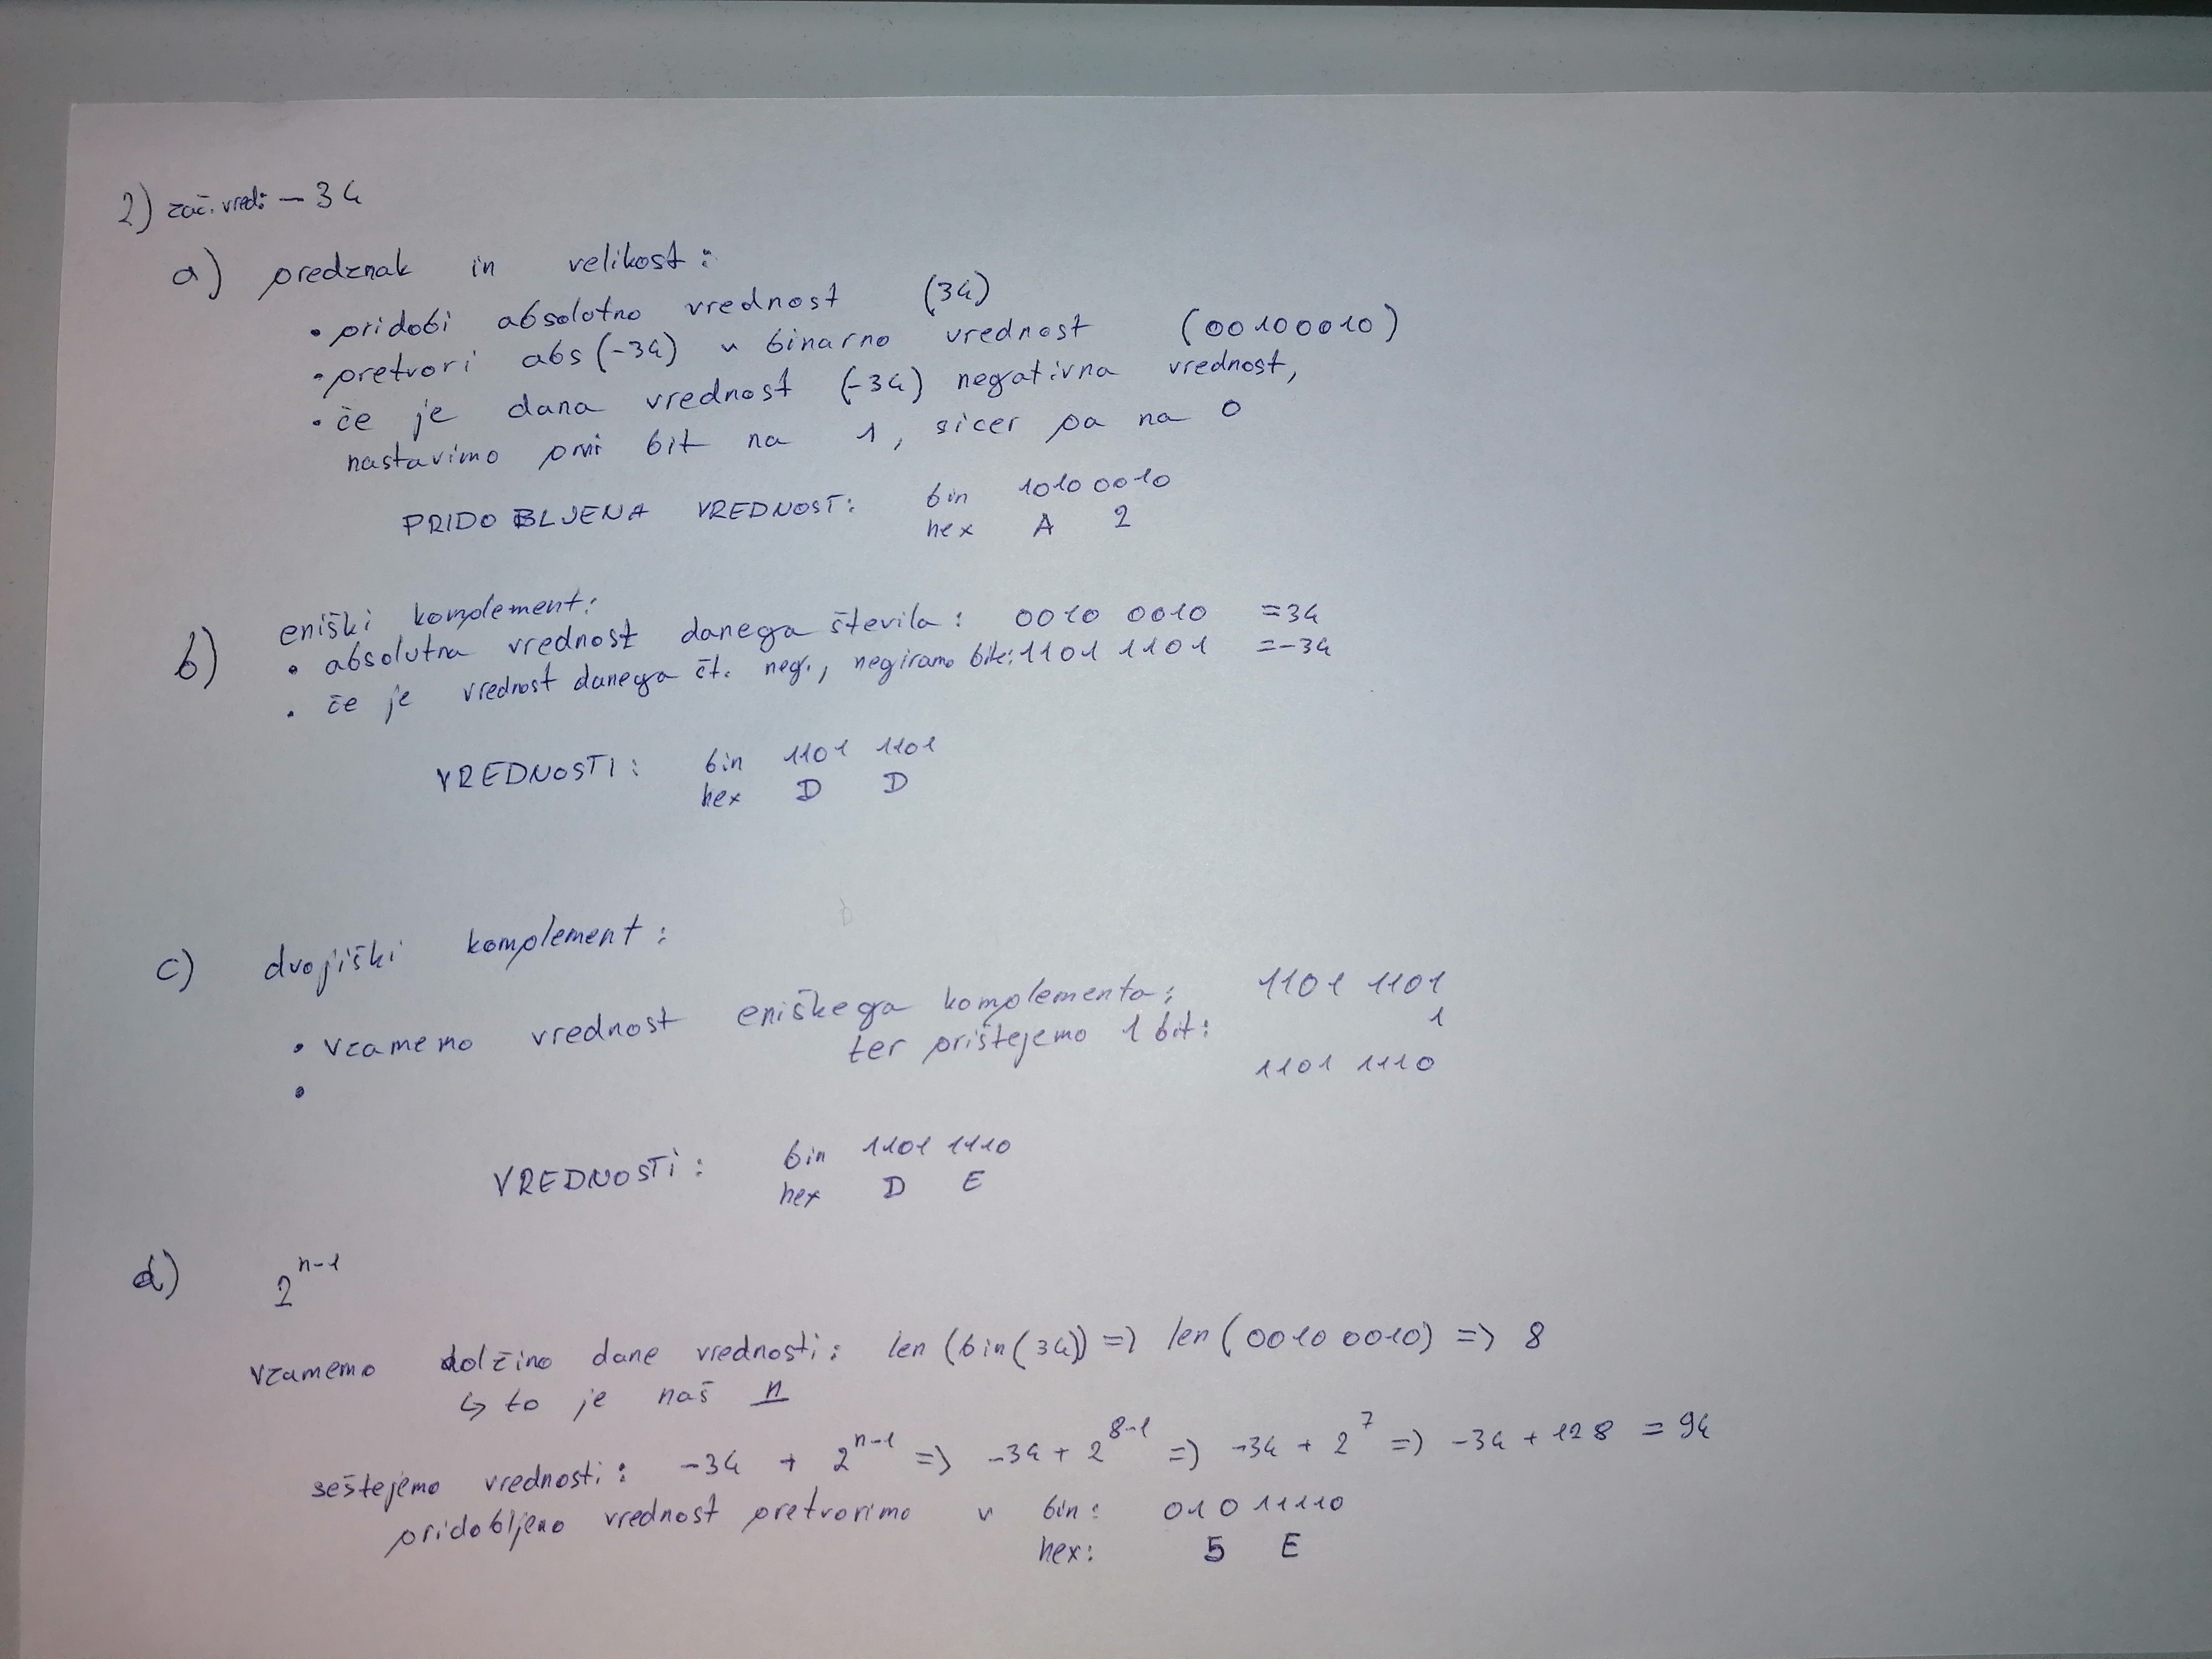 2) zač. vred: -34
a) predznak in velikost:
• pridobi absolutno vrednost (34)
• pretvori abs(-34) v binarno vrednost (00100010)
• če je dana vrednost (-34) negativna vrednost,
nastavimo prvi bit na 1, sicer pa na 0
PRIDOBLJENA VREDNOST: bin 1010 0010
hex A 2
b) eniški komplement:
• absolutna vrednost danega števila: 0010 0010 = 34
• če je vrednost danega čt. neg., negiramo bite: 1101 1101 = -34
VREDNOSTI: bin 1101 1101
hex D D
c) dvojiški komplement:
• vzamemo vrednost eniškega komplementa: 1101 1101
ter prištejemo 1 bit: 1
• 1101 1110
VREDNOSTI: bin 1101 1110
hex D E
d) 2^{n-1}
vzamemo dolžino dane vrednosti: len(bin(34)) => len(0010 0010) => 8
↳ to je naš n
seštejemo vrednosti: -34 + 2^{n-1} => -34 + 2^{8-1} => -34 + 2^7 => -34 + 128 = 94
pridobljeno vrednost pretvorimo v bin: 010 11110
hex: 5 E